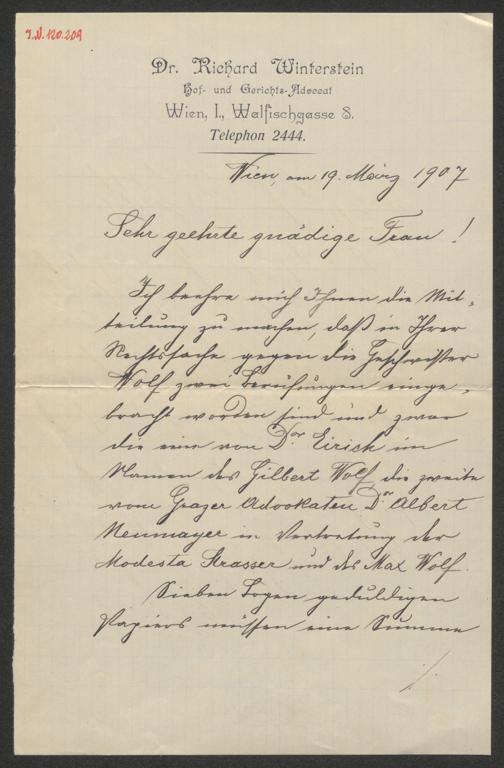 I.N. 120.209
Dr. Richard Winterstein
Hof- und Gerichts-Advocat
Wien, I., Walfischgasse 8.
Telephon 2444.
Wien, am 19. März 1907
Sehr geehrte gnädige Frau!
Ich beehre mich Ihnen die Mit-
teilung zu machen, daß in Ihrer
Rechtssache gegen die Geschwister
Wolf zwei Berufungen einge-
bracht worden sind und zwar
die eine von Dr. Eirich im
Namen des Gilbert Wolf, die zweite
vom Grazer Advokaten Dr. Albert
Neumayer in Vertretung der
Modesta Strasser und des Max Wolf.
Sieben Bogen geduldigen
Papiers müssen eine Summe
./.